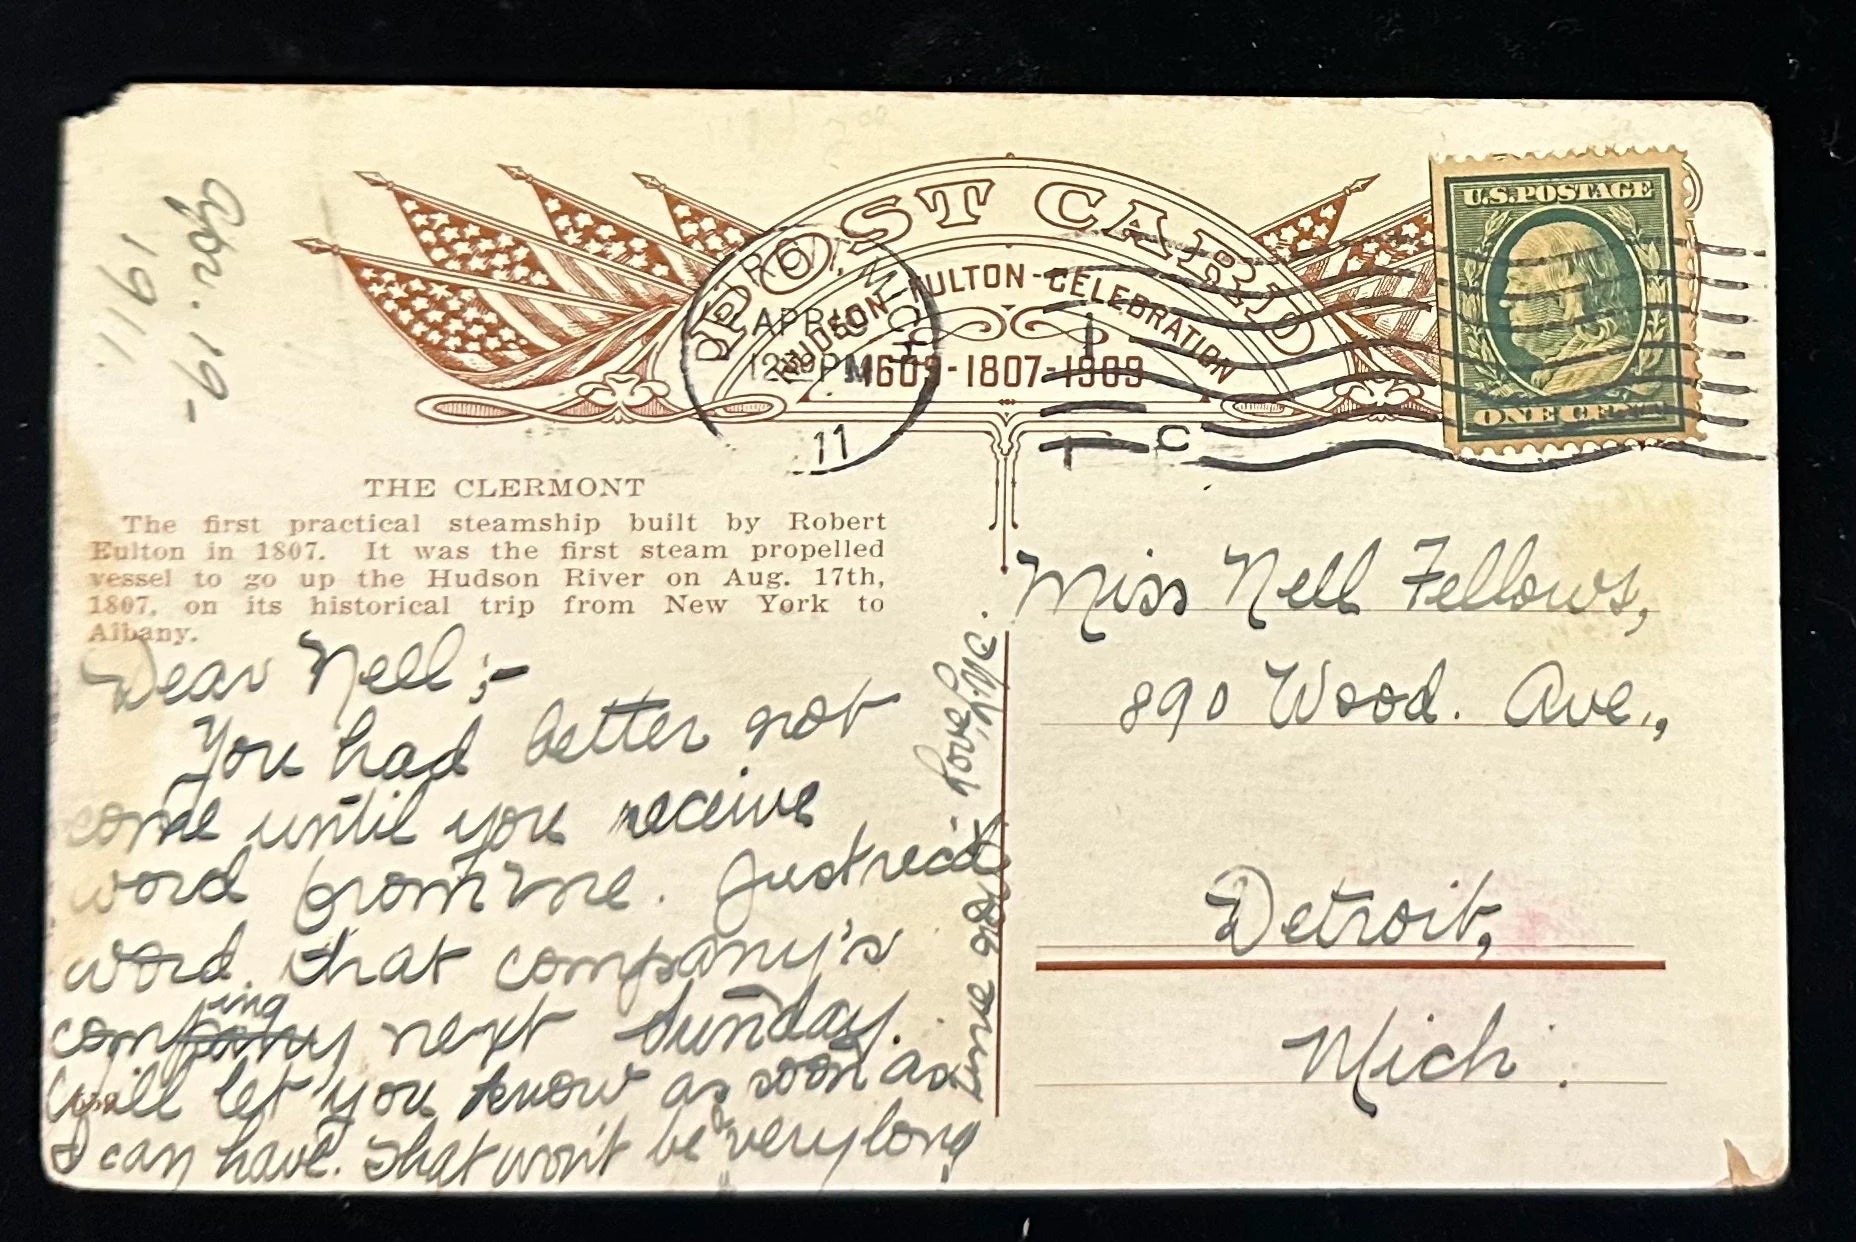 POST CARD
HUDSON-FULTON-CELEBRATION
1609-1807-1909
U.S. POSTAGE
ONE CENT
DETROIT, MICH.
APR 19
12 PM
11
Apr. 19-
1911.
THE CLERMONT
The first practical steamship built by Robert
Fulton in 1807. It was the first steam propelled
vessel to go up the Hudson River on Aug. 17th,
1807, on its historical trip from New York to
Albany.
Dear Nell;-
You had better not
come until you receive
word from me. Just rec'd
word that company's
coming next Sunday.
Will let you know as soon as
I can have. That won't be very long
time now. Love,
Miss Nell Fellows,
890 Wood. Ave.,
Detroit,
Mich.